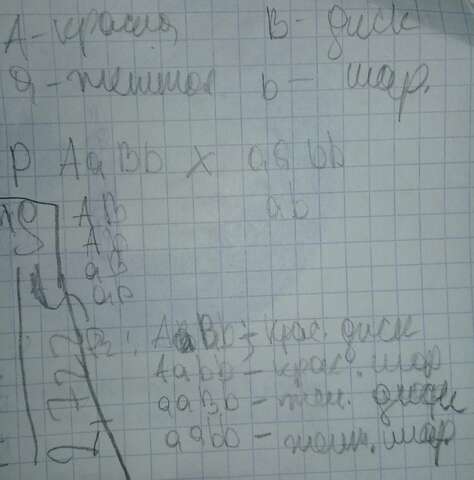 A - красная B - диск
a - желтая b - шар.
P AaBb x aabb
AB ab
Ab
aB
ab
F2: AaBb - крас. диск
Aabb - крас. шар
aaBb - жел. диск
aabb - желт. шар